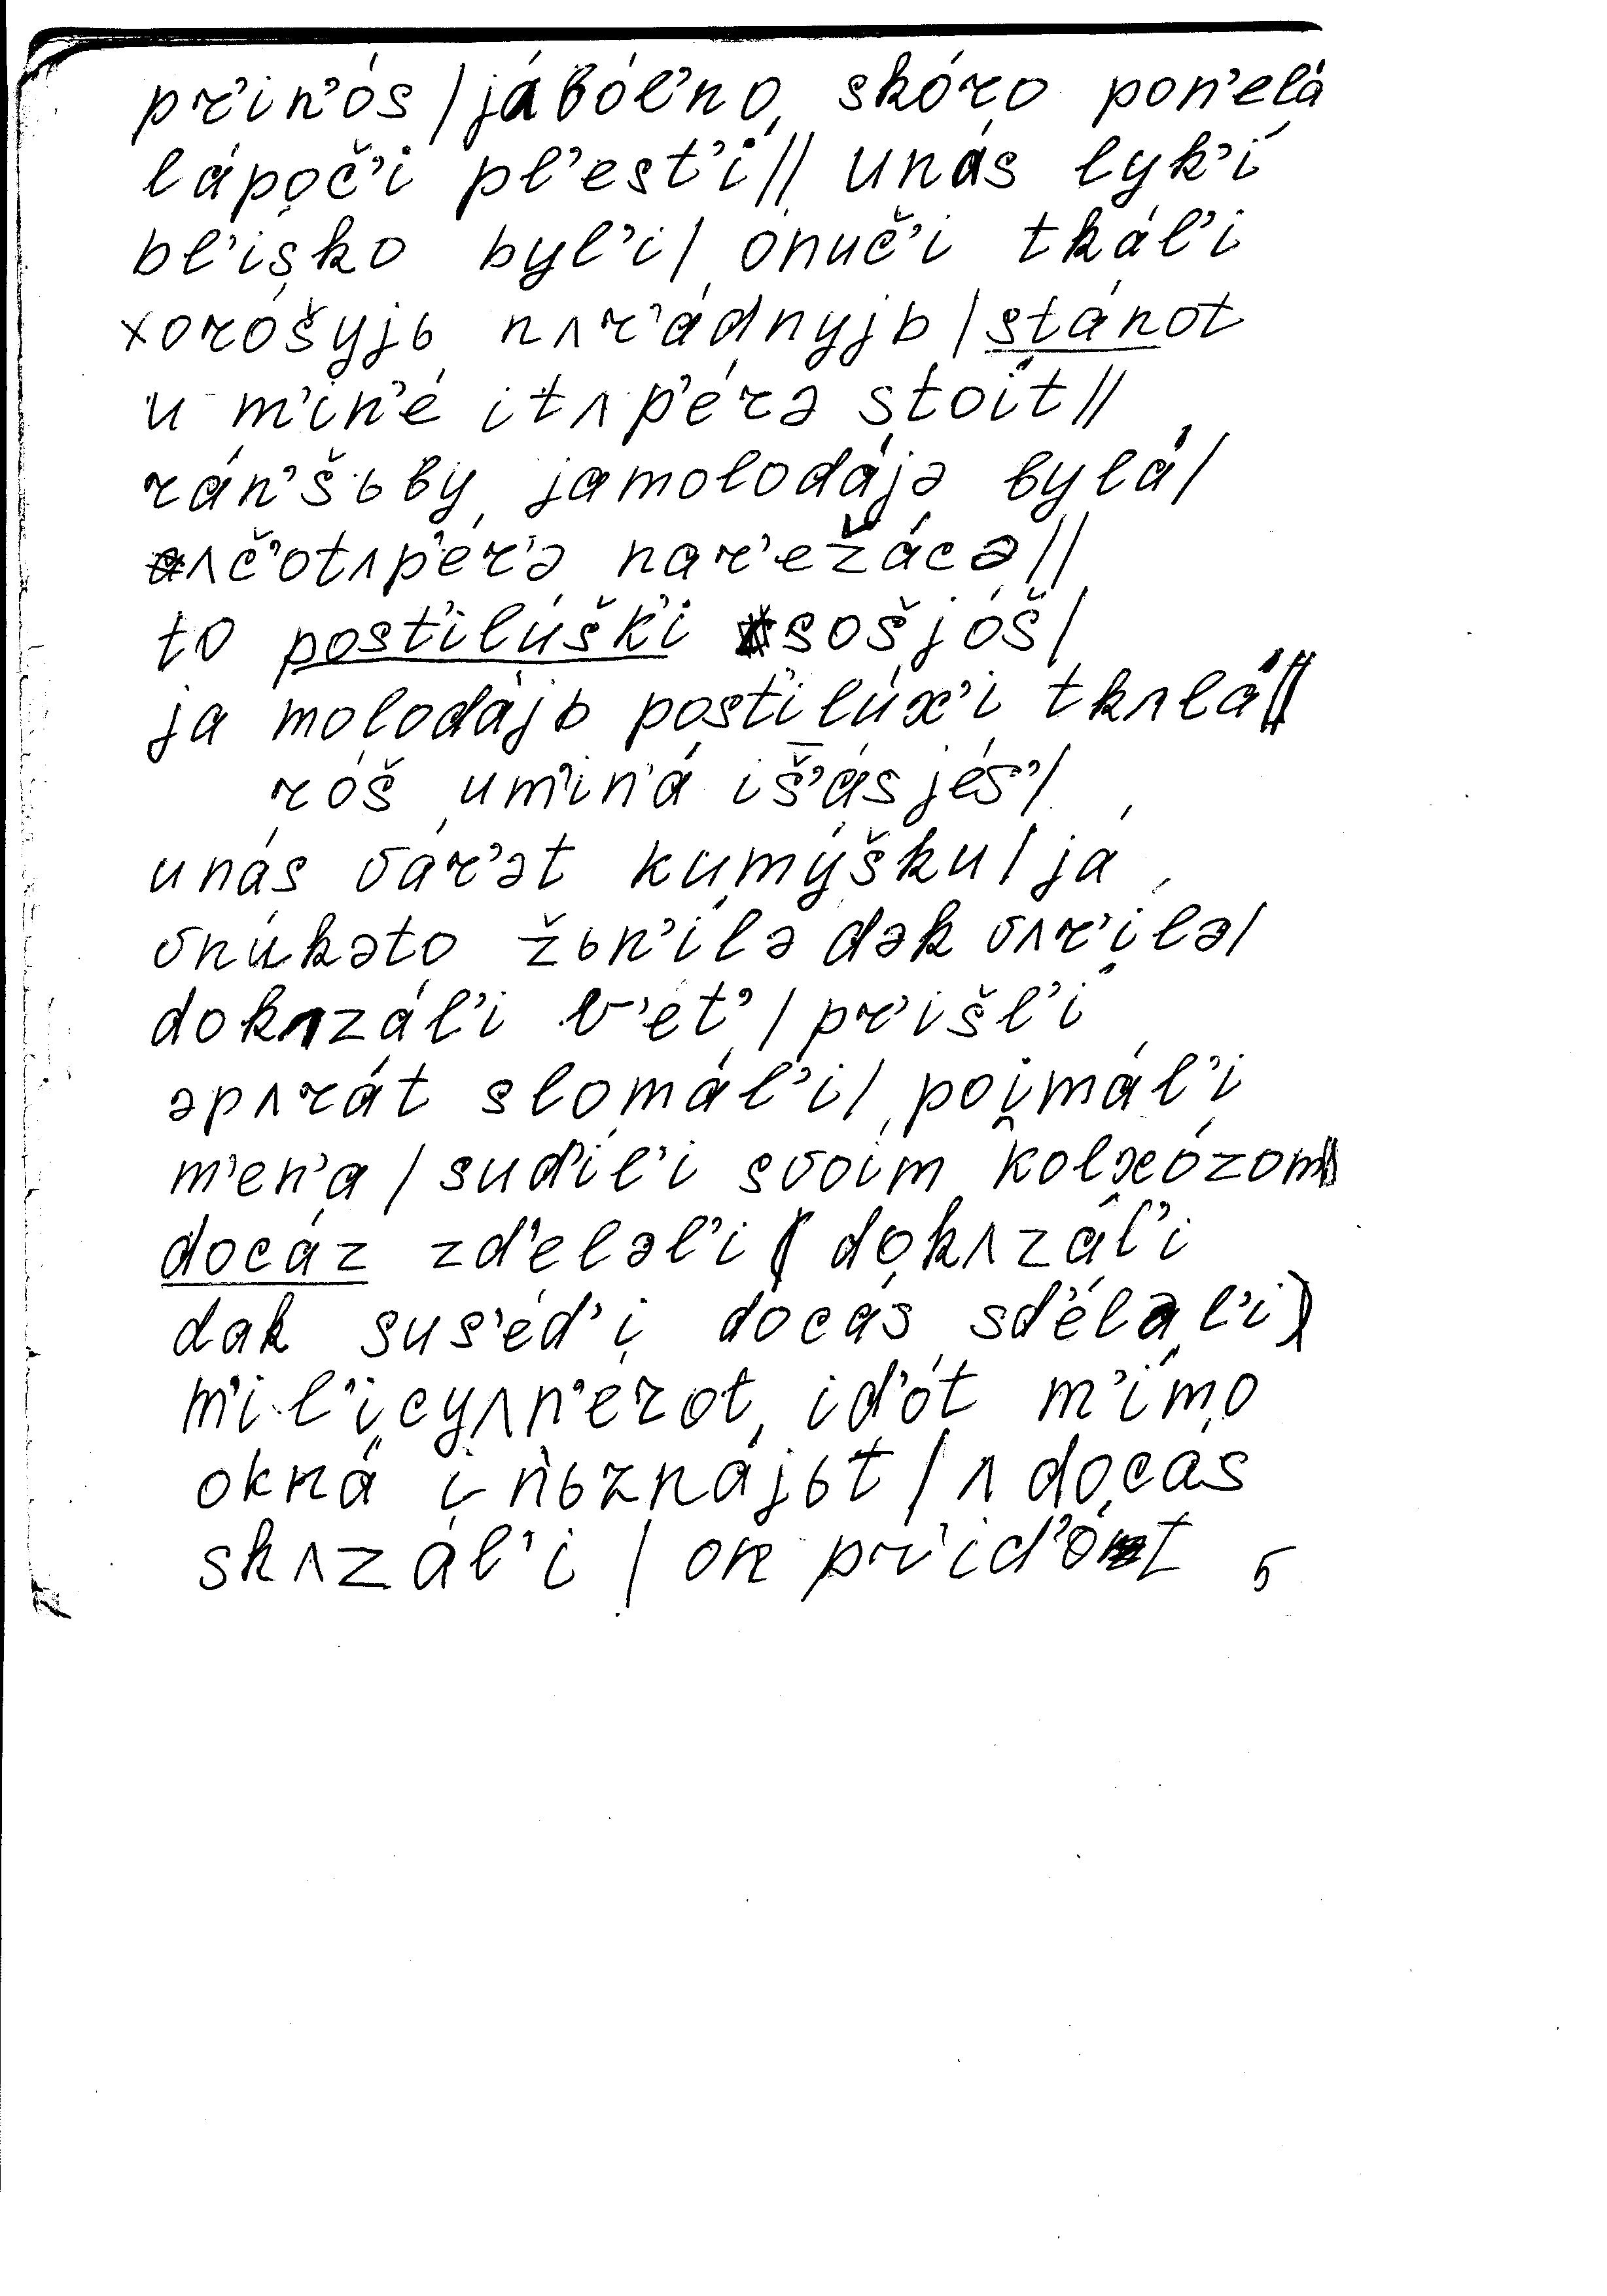 pr’in’ós / jából’no skóro pon’elá
lápoč’i pl’est’í // unás lyk’í
bl’ísko byl’i / ónuč’i tkál’i
xoróšyjь nʌr’ádnyjь / stánot
u m’in’é itʌp’érə stoít //
rán’šьby jamolodájə bylá /
ʌč’otʌp’ér’ə nar’ežácə //
to post’ilúšk’i sošjóš /
ja molodájь post’ilúx’i tkʌlá //
róš um’in’á iš’ásjés’ /
unás vár’ət kumýšku / já
vnúkəto žьn’ílə dək vʌr’ílə /
dokʌzál’i v’et’ / pr’išl’í
əpʌrát slomál’i / poimál’i
m’en’a / sud’íl’i svoím kolxózom //
docáz zd’eləl’i ( dokʌzál’i
dak sus’éd’i docás sd’éləl’i )
m’il’icyʌn’érot id’ót m’ímo
okná i n’ьznájьt / ʌ docás
skʌzál’i / on pr’id’ót 5